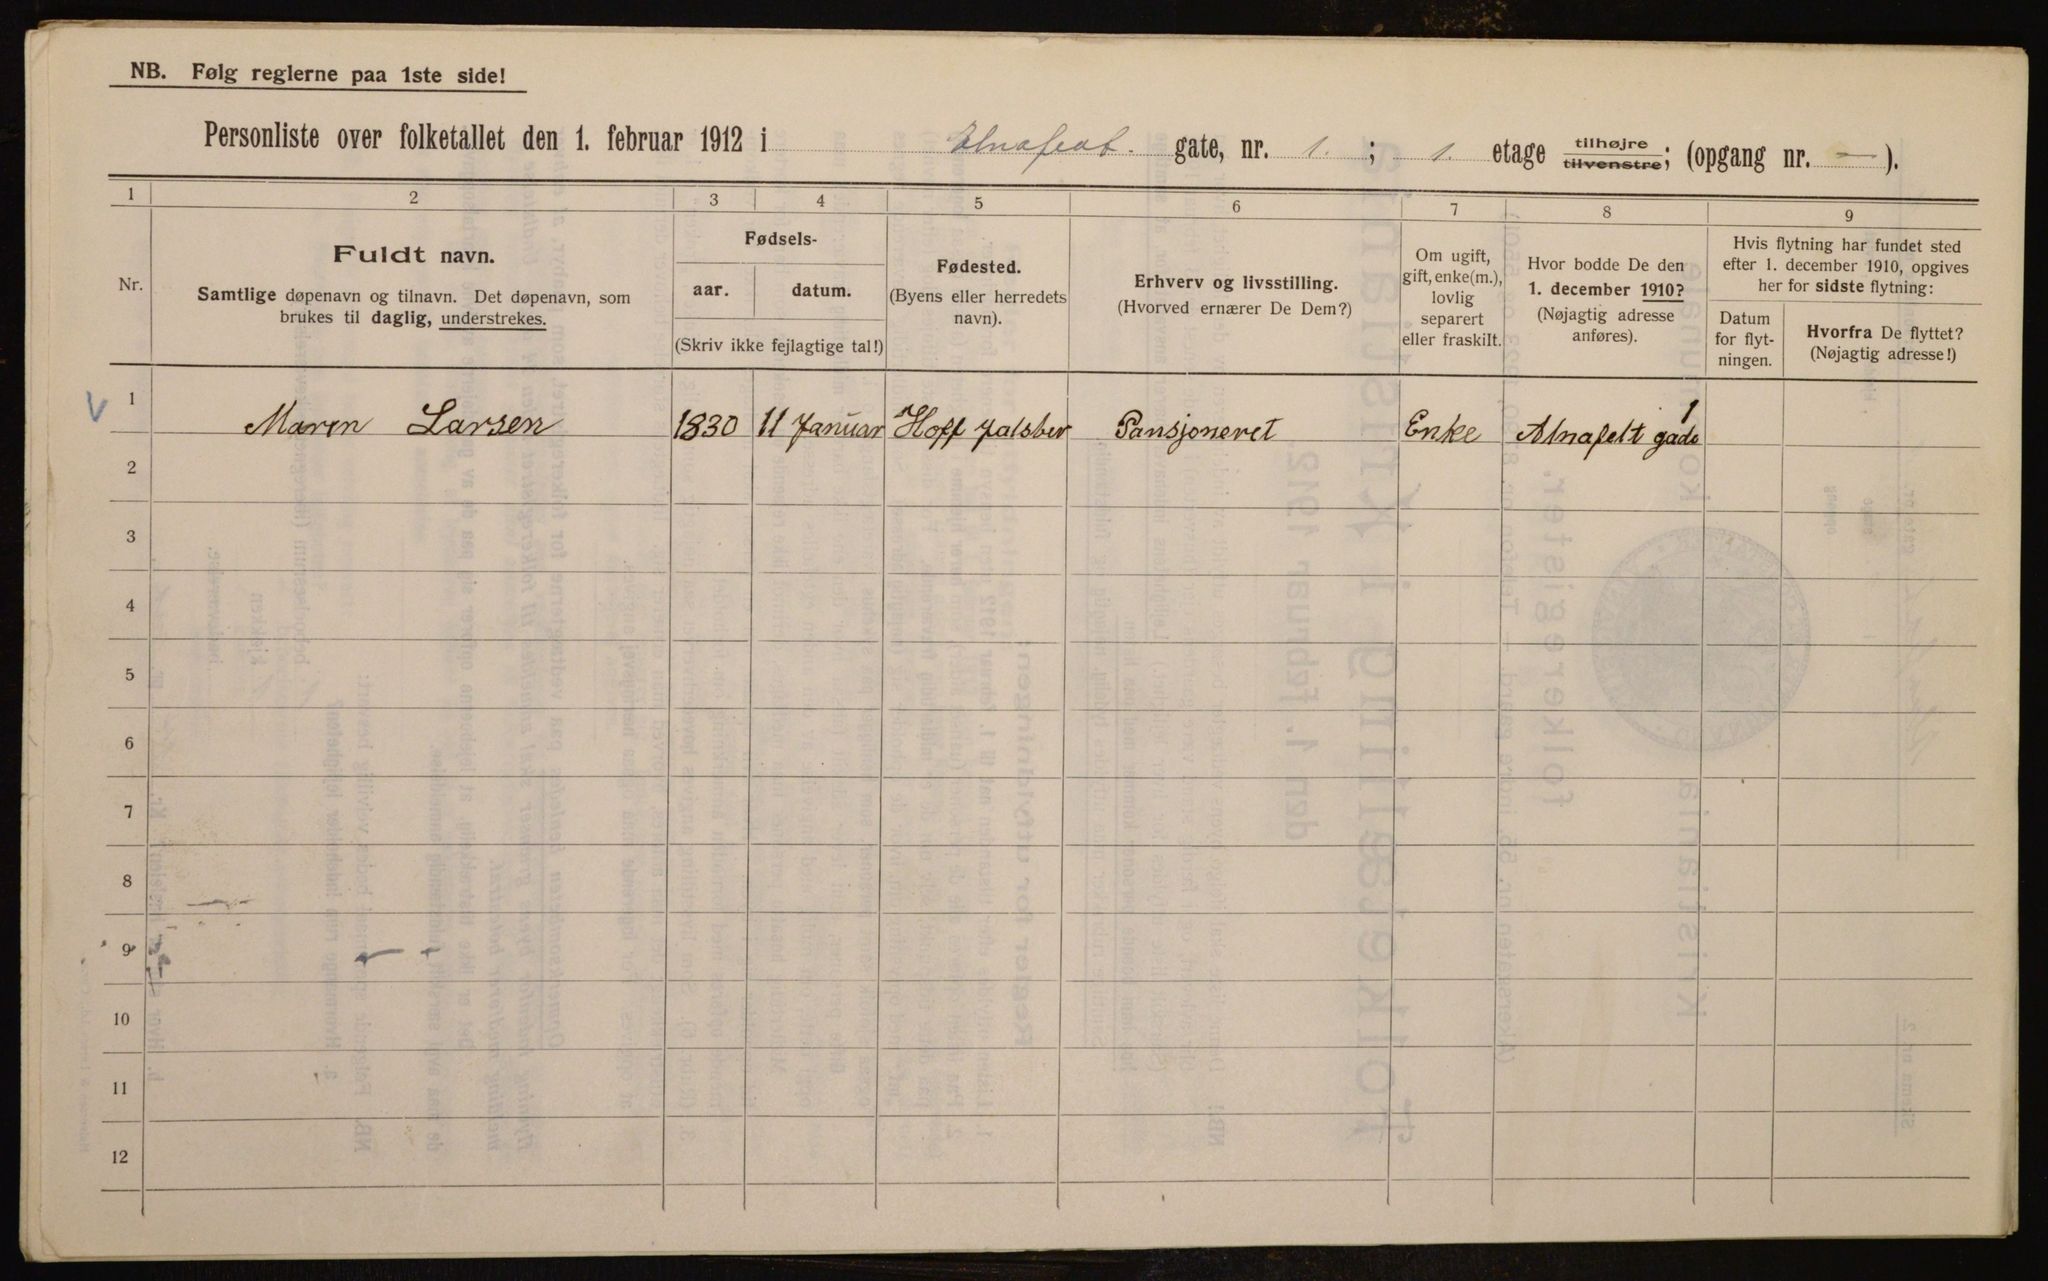 NB. Følg reglerne paa 1ste side!
Personliste over folketallet den 1. februar 1912 i Alnafeat. gate, nr. 1. ; 1. etage tilhøjre tilvenstre; (opgang nr. — ).
1 2 3 4 5 6 7 8 9
Nr.
Fuldt navn.
Samtlige døpenavn og tilnavn. Det døpenavn, som
brukes til daglig, understrekes.
Fødsels-
aar. datum.
(Skriv ikke fejlagtige tal!)
Fødested.
(Byens eller herredets
navn).
Erhverv og livsstilling.
(Hvorved ernærer De Dem?)
Om ugift,
gift, enke(m.),
lovlig
separert
eller fraskilt.
Hvor bodde De den
1. december 1910?
(Nøjagtig adresse
anføres).
Hvis flytning har fundet sted
efter 1. december 1910, opgives
her for sidste flytning:
Datum
for flyt-
ningen.
Hvorfra De flyttet?
(Nøjagtig adresse!)
V 1 Maren Larsen 1830 11 Januar Hoff Jalsber Pansjoneret Enke Alnafelt gade 1
2
3
4
5
6
7
8
9
10
11
12